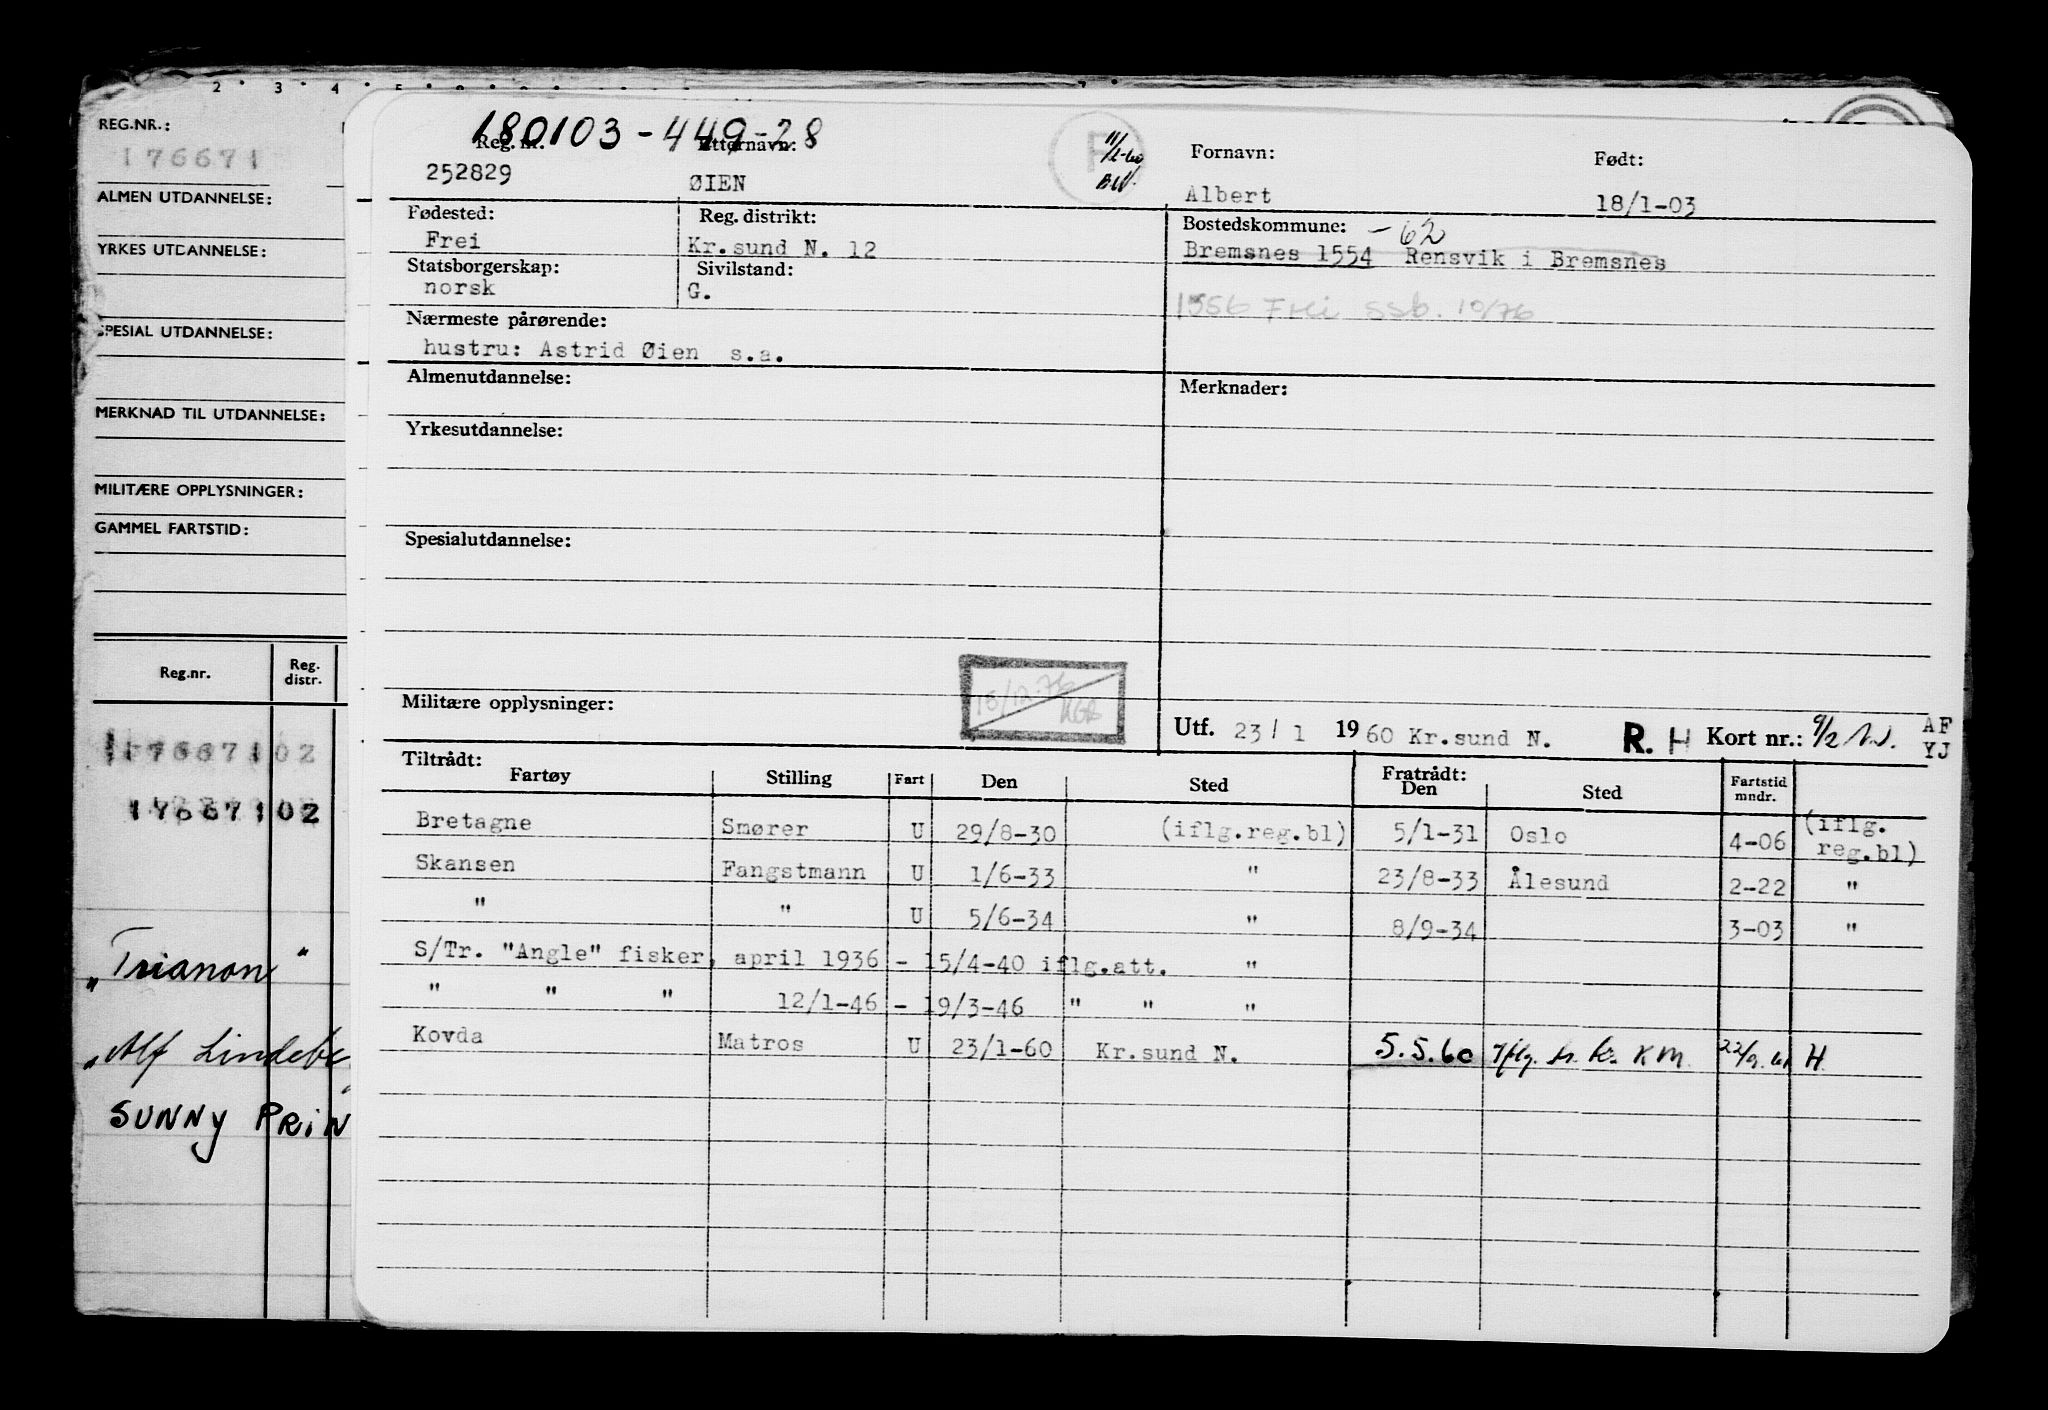 REG.NR.:
176671
ALMEN UTDANNELSE:
YRKES UTDANNELSE:
SPESIAL UTDANNELSE:
MERKNAD TIL UTDANNELSE:
MILITÆRE OPPLYSNINGER:
GAMMEL FARTSTID:
Reg.nr. Reg. distr.
176671 02
176671 02
"Trianon"
"Alf Lindebe
SUNNY PRIN
180103-449-28
Reg. nr. Etternavn: Fornavn: Født:
252829 ØIEN Albert 18/1-03
Fødested: Reg. distrikt: Bostedskommune: -62
Frei Kr.sund N. 12 Bremsnes 1554 Rensvik i Bremsnes
Statsborgerskap: Sivilstand:
norsk G.
1556 Frei ssb. 10/76
Nærmeste pårørende:
hustru: Astrid Øien s.a.
Almenutdannelse: Merknader:
Yrkesutdannelse:
Spesialutdannelse:
Militære opplysninger:
Utf. 23/1 1960 Kr.sund N. R. H Kort nr.: AF
YJ
Tiltrådt: Fratrådt:
Fartøy Stilling Fart Den Sted Den Sted Fartstid mndr.
Bretagne Smører U 29/8-30 (iflg.reg.bl) 5/1-31 Oslo 4-06 (iflg. reg.bl)
Skansen Fangstmann U 1/6-33 " 23/8-33 Ålesund 2-22 "
" " U 5/6-34 " 8/9-34 3-03 "
S/Tr. "Angle" fisker, april 1936 - 15/4-40 iflg.att. "
" " " 12/1-46 - 19/3-46 " " "
Kovda Matros U 23/1-60 Kr.sund N. 5.5.60 Iflg. KM. H.